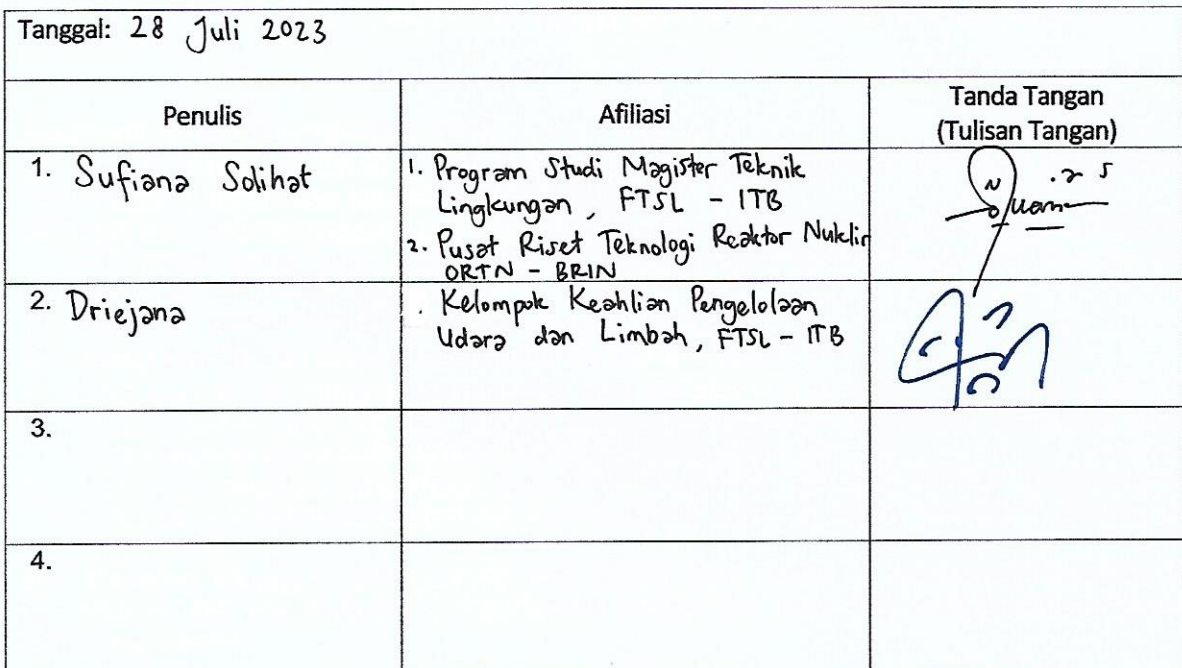 Tanggal: 28 Juli 2023
Penulis
Afiliasi
Tanda Tangan
(Tulisan Tangan)
1. Sufiana Solihat
1. Program Studi Magister Teknik
Lingkungan, FTSL - ITB
2. Pusat Riset Teknologi Reaktor Nuklir
ORTN - BRIN
2. Driejana
. Kelompok Keahlian Pengelolaan
Udara dan Limbah, FTSL - ITB
3.
4.